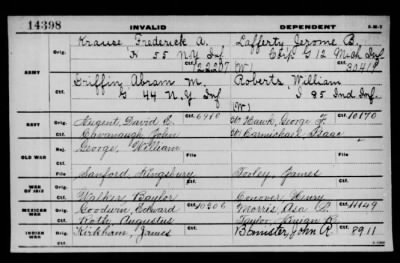 14398 INVALID DEPENDENT
Krause, Frederick A. Lafferty, Jerome B.
Orig. K 55 N.Y. Inf Corp. G 12 Mich Inf
ARMY
Ctf. 22207 (W) Ctf.
Griffin, Abram M. Roberts, William
G 44 N.Y. Inf I 85 Ind. Inf.
(W)
NAVY Orig. Nugent, David C. Ctf. 6910 W Hawk, George F. Ctf. 10170
Cavanaugh, John W Carmichael, Isaac
OLD WAR George, William
Sanford, Kingsbury Tooley, James
WAR OF 1812 Orig. Walker, Baylor Conover, Henry
MEXICAN WAR Orig. Goodwin, Edward Ctf. Morris, Asa Ctf. 11149
Roth, Augustus Taylor
INDIAN WAR Orig. Kirkham, James Ctf. Bannister, John R. Ctf. 8911